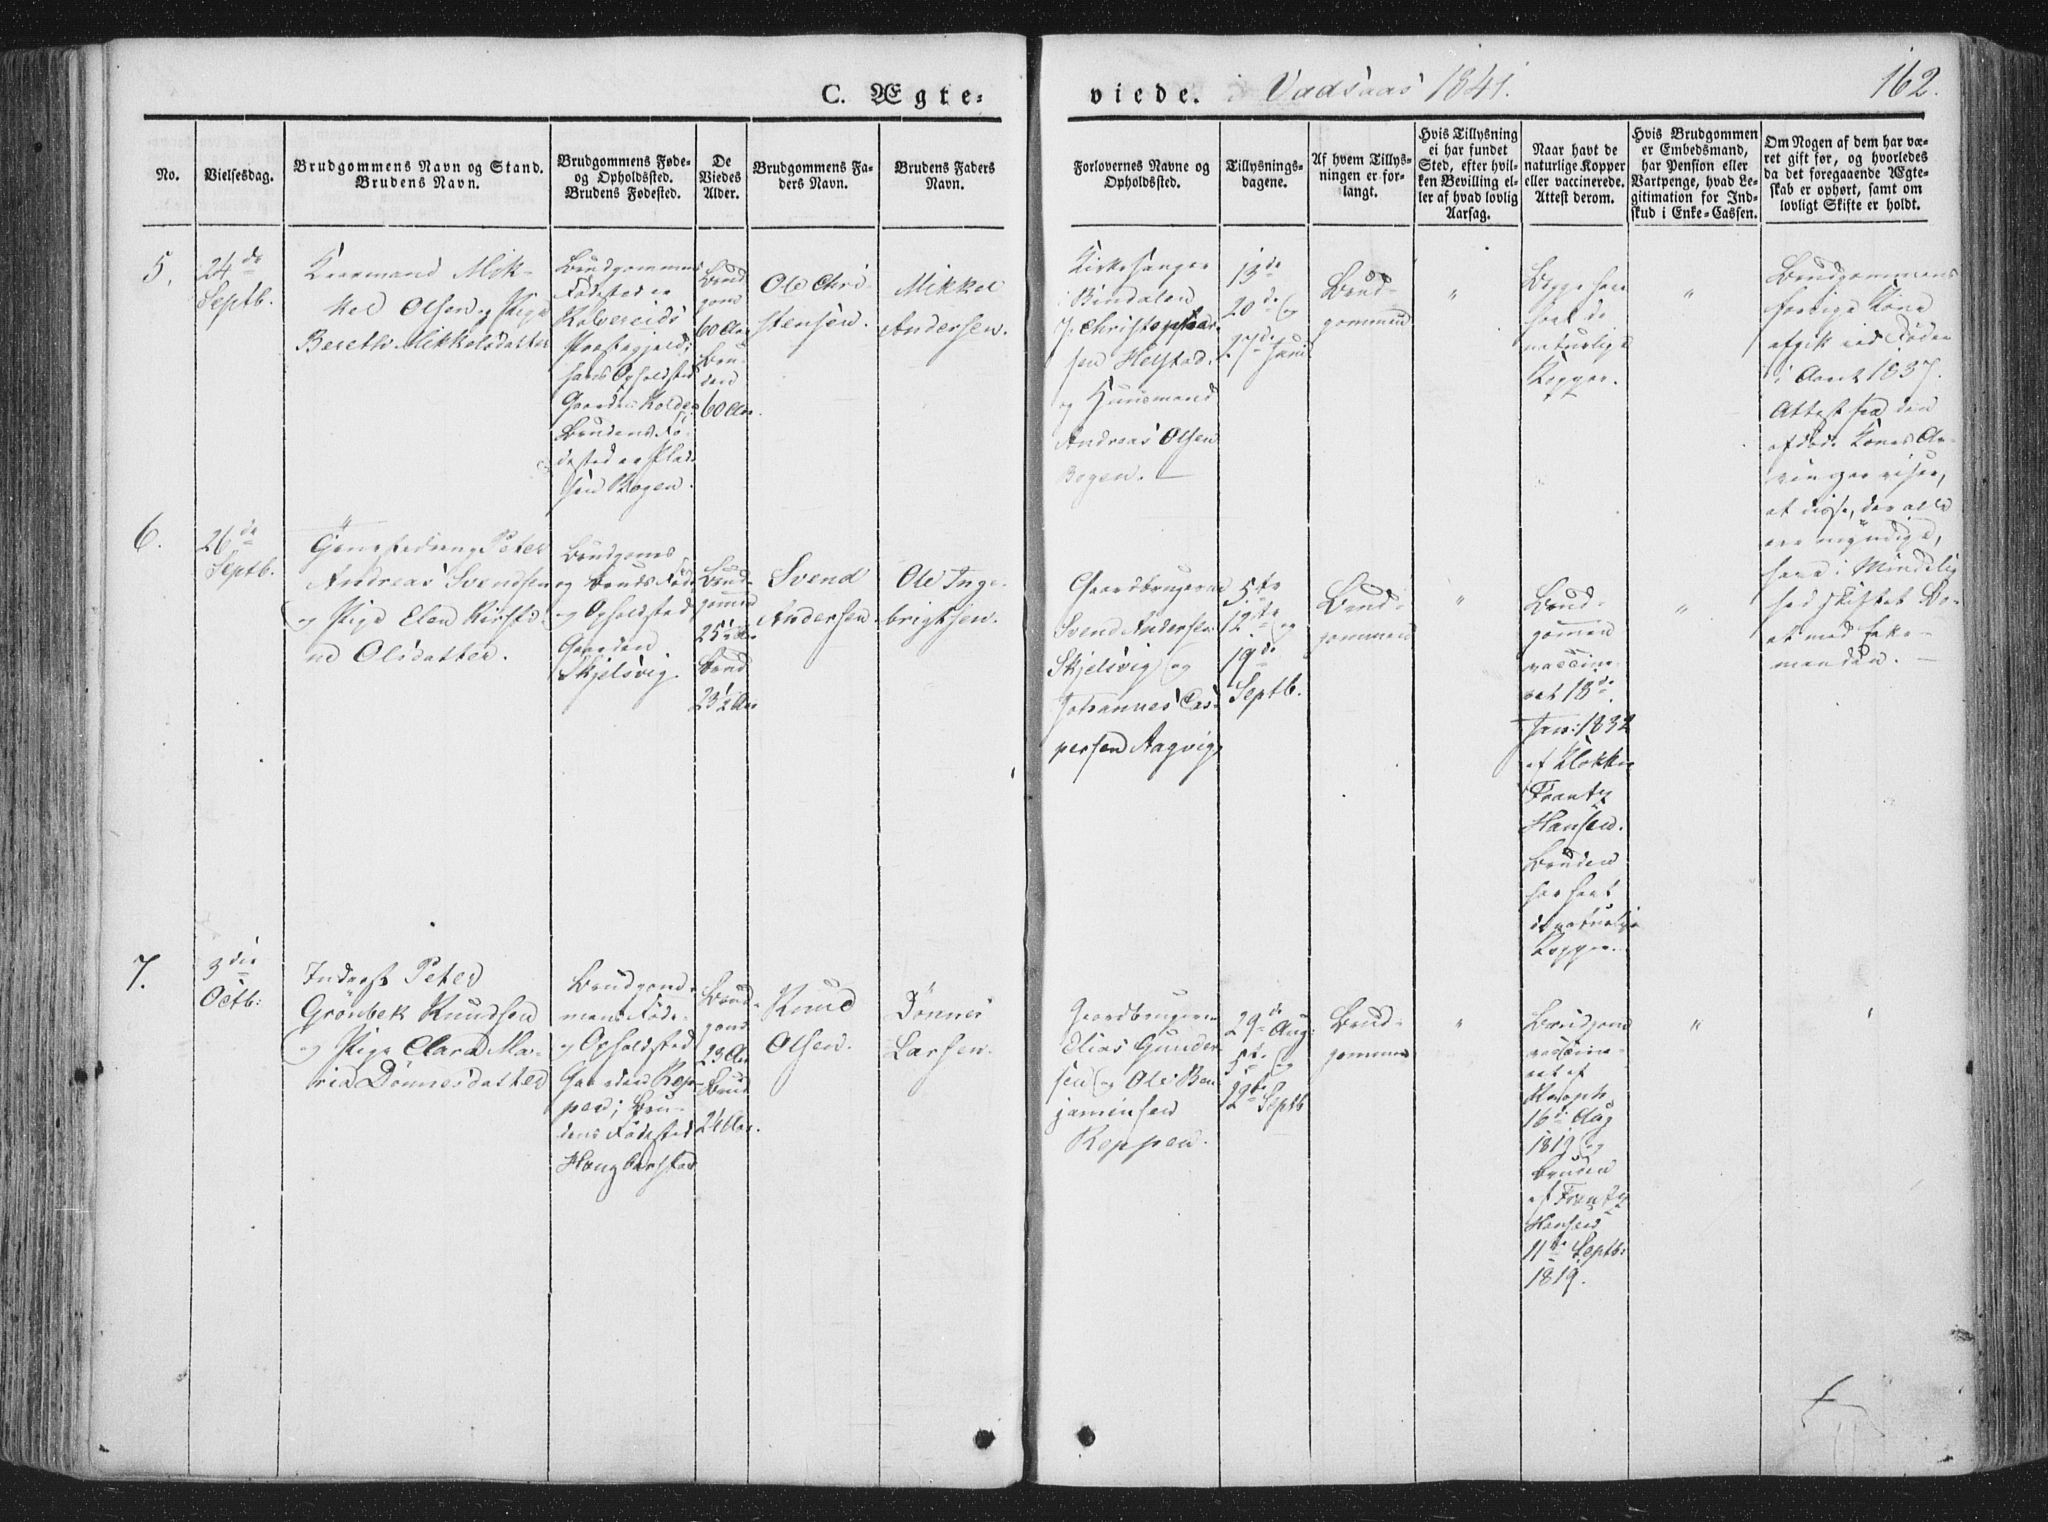 C. Ægte-
viede. i Vadsaas 1841.
162.
No.
Vielsesdag.
Brudgommens Navn og Stand.
Brudens Navn.
Brudgommens Føde-
og Opholdssted.
Brudens Fødested.
De
Viedes
Alder.
Brudgommens Fa-
ders Navn.
Brudens Faders
Navn.
Forlovernes Navne og
Opholdssted.
Tillysnings-
dagene.
Af hvem Tillys-
ningen er for-
langt.
Hvis Tillysning
ei har fundet
Sted, efter hvil-
ken Bevilling el-
ler af hvad lovlig
Aarsag.
Naar havt de
naturlige Kopper
eller vaccinerede.
Attest derom.
Hvis Brudgommen
er Embedsmand,
har Pension eller
Vartpenge, hvad Le-
gitimation for Ind-
skud i Enke-Cassen.
Om Nogen af dem har væ-
ret gift før, og hvorledes
da det foregaaende Ægte-
skab er ophørt, samt om
lovligt Skifte er holdt.
5.
24de
Septb.
Mik-
kel Olsen og Pige
Bereth Mikkelsdatter
Brudgommens
Fødested er
Kolvereids
Præstegjeld;
hans Opholdsted
Gaarden Kolde
Brudens Fø-
dested er Plad-
sen Bogen.
Brud
gom
60 Aar
Bru-
den
60 Aar.
Ole Chri-
stensen.
Mikkel
Andersen.
Kirkesanger
i Bindalen
Christophers-
sen Helstad
og Huusmand
Andreas Olsen
Bogen. —
13de
20de og
27de Juni
Brud
gommen
"
Begge have
havt de
naturlige
Kopper.
"
Brudgommens
forrige Kone
afgik ved Døden
i Aaret 1837.
Attest fra den
afdøde Kones Ar-
vinger viser,
at disse, der alle
ere myndige,
have i Mindelig-
hed skiftet Bo-
et med Enke-
manden. —
6.
26de
Septb.
Peter
Andreas Svendsen
og Pige Elen Kirsti-
ne Olsdatter.
Brudgoms
og Bruds Føde
og Opholdsted
Gaarden
Skjelsvig.
Brud-
gommen
25½ Aar
Brud
23½ Aar
Svend
Andersen.
Ole Inge-
brigtsen.
Gaardbrugerne
Svend Andersen
Skjelsvig og
Johannes Cas-
persen Aagvig
5te
12te og
19de
Septb.
Brud-
gommen
"
Brud-
gommen
vaccine-
ret 18de
Jan: 1832
af Klokker
Frantz
Hansen.
Bruden
har havt
de naturlige
Kopper.
"
7.
3die
Octb:
Inderst Peter
Grönbek Knudsen
og Pige Clara Ma-
ria Dønnesdatter
Brudgom-
mens Føde-
og Opholdsted
Gaarden Rep-
pen; Bru-
dens Fødested
Brud-
gom
23 Aar
Brud
24 Aar.
Knud
Olsen.
Dönnes
Larsen.
Gaardbrugerne
Elias Gunder-
sen og Ole Ben-
jaminsen
Reppen.
29de Aug:
5te og
12te Septb
Brud-
gommen
"
Brudgom
vaccine-
ret af
16de Aug
1819 og
Bruden
af Frantz
Hansen
11te Septb:
1819.
"